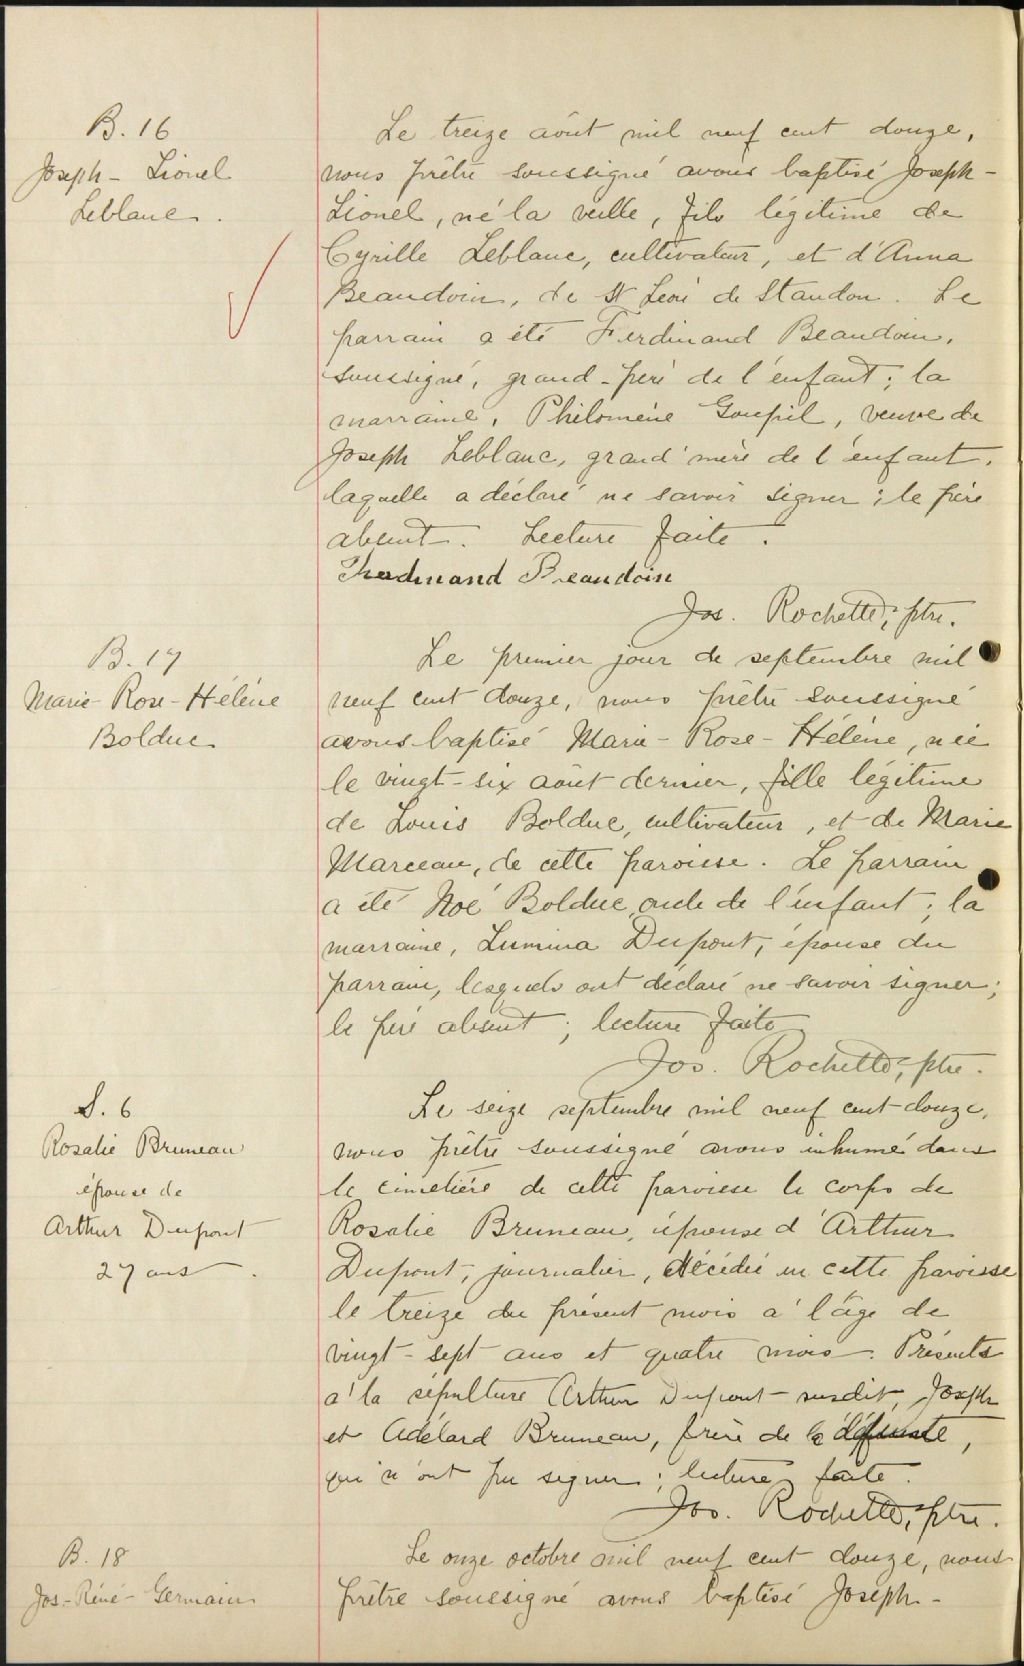 B. 16
Joseph - Lionel
Leblanc.
Le treize août mil neuf cent douze,
nous prêtre soussigné avons baptisé Joseph -
Lionel, né la veille, fils légitime de
Cyrille Leblanc, cultivateur, et d'Anna
Beaudoin, de St Léon de Standon. Le
parrain a été Ferdinand Beaudoin,
soussigné, grand-père de l'enfant; la
marraine, Philomène Goupil, veuve de
Joseph Leblanc, grand'mère de l'enfant,
laquelle a déclaré ne savoir signer; le père
absent. Lecture faite.
Ferdinand Beaudoin
Jos. Rochette, ptre.
B. 17
Marie-Rose-Hélène
Bolduc
Le premier jour de septembre mil
neuf cent douze, nous prêtre soussigné
avons baptisé Marie-Rose-Hélène, née
le vingt-six août dernier, fille légitime
de Louis Bolduc, cultivateur, et de Marie
Marceau, de cette paroisse. Le parrain
a été Noé Bolduc, oncle de l'enfant; la
marraine, Lumina Dupont, épouse du
parrain, lesquels ont déclaré ne savoir signer;
le père absent; lecture faite
Jos. Rochette, ptre.
S. 6
Rosalie Bruneau
épouse de
Arthur Dupont
27 ans.
Le seize septembre mil neuf cent douze,
nous prêtre soussigné avons inhumé dans
le cimetière de cette paroisse le corps de
Rosalie Bruneau, épouse d'Arthur
Dupont, journalier, décédée en cette paroisse
le treize du présent mois à l'âge de
vingt-sept ans et quatre mois. Présents
à la sépulture Arthur Dupont susdit, Joseph
et Adélard Bruneau, frère de la défunte,
qui n'ont pu signer; lecture faite.
Jos. Rochette, ptre.
B. 18
Jos-Réné-Germain
Le onze octobre mil neuf cent douze, nous
prêtre soussigné avons baptisé Joseph -